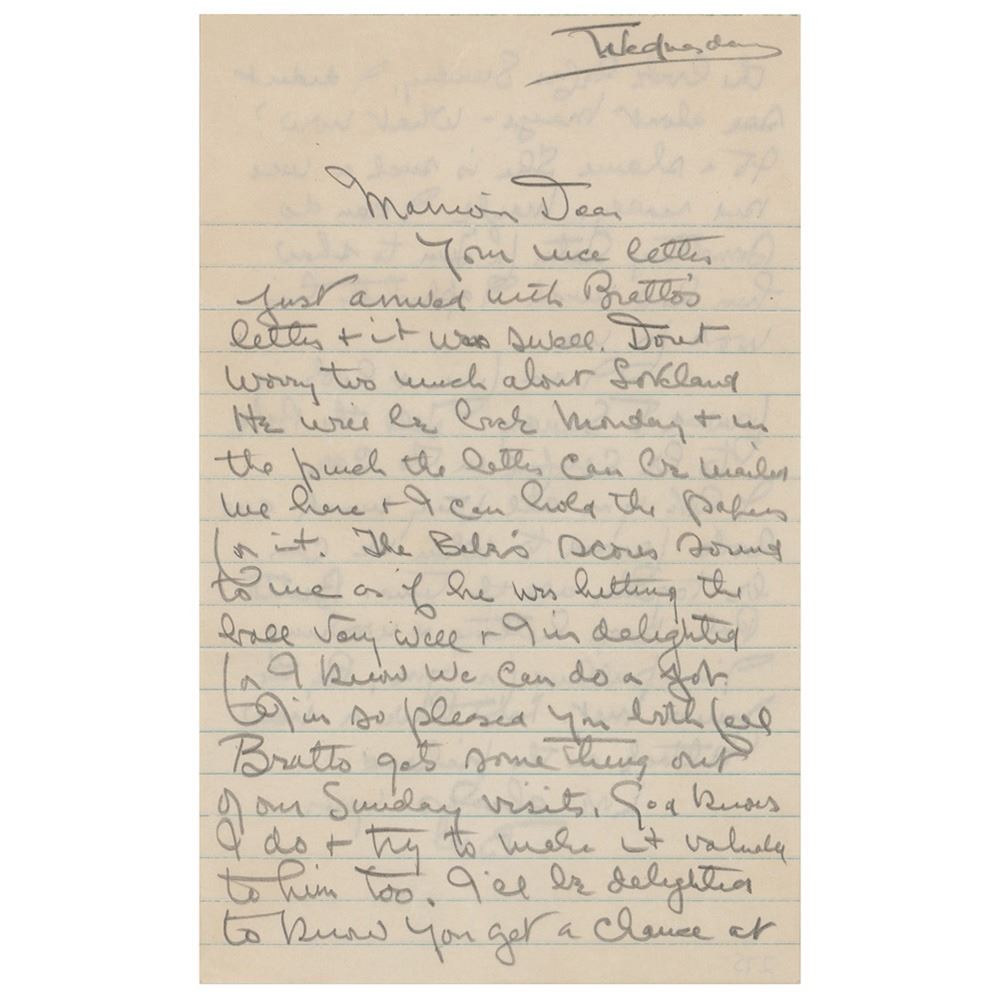 Wednesday
Marrion Dear
Your nice letter
just arrived with Bratto's
letter + it was swell. Dont
worry too much about
He will be back Monday + in
the pinch the letter can be mailed
me here + I can hold the papers
for it. The Babe's scores sound
to me as if he was hitting the
ball very well + I'm delighted
for I know we can do a job.
I'm so pleased you both feel
Bratto gets some thing out
of our Sunday visits. God knows
I do + try to make it valuable
to him too. I'll be delighted
to know you get a chance at